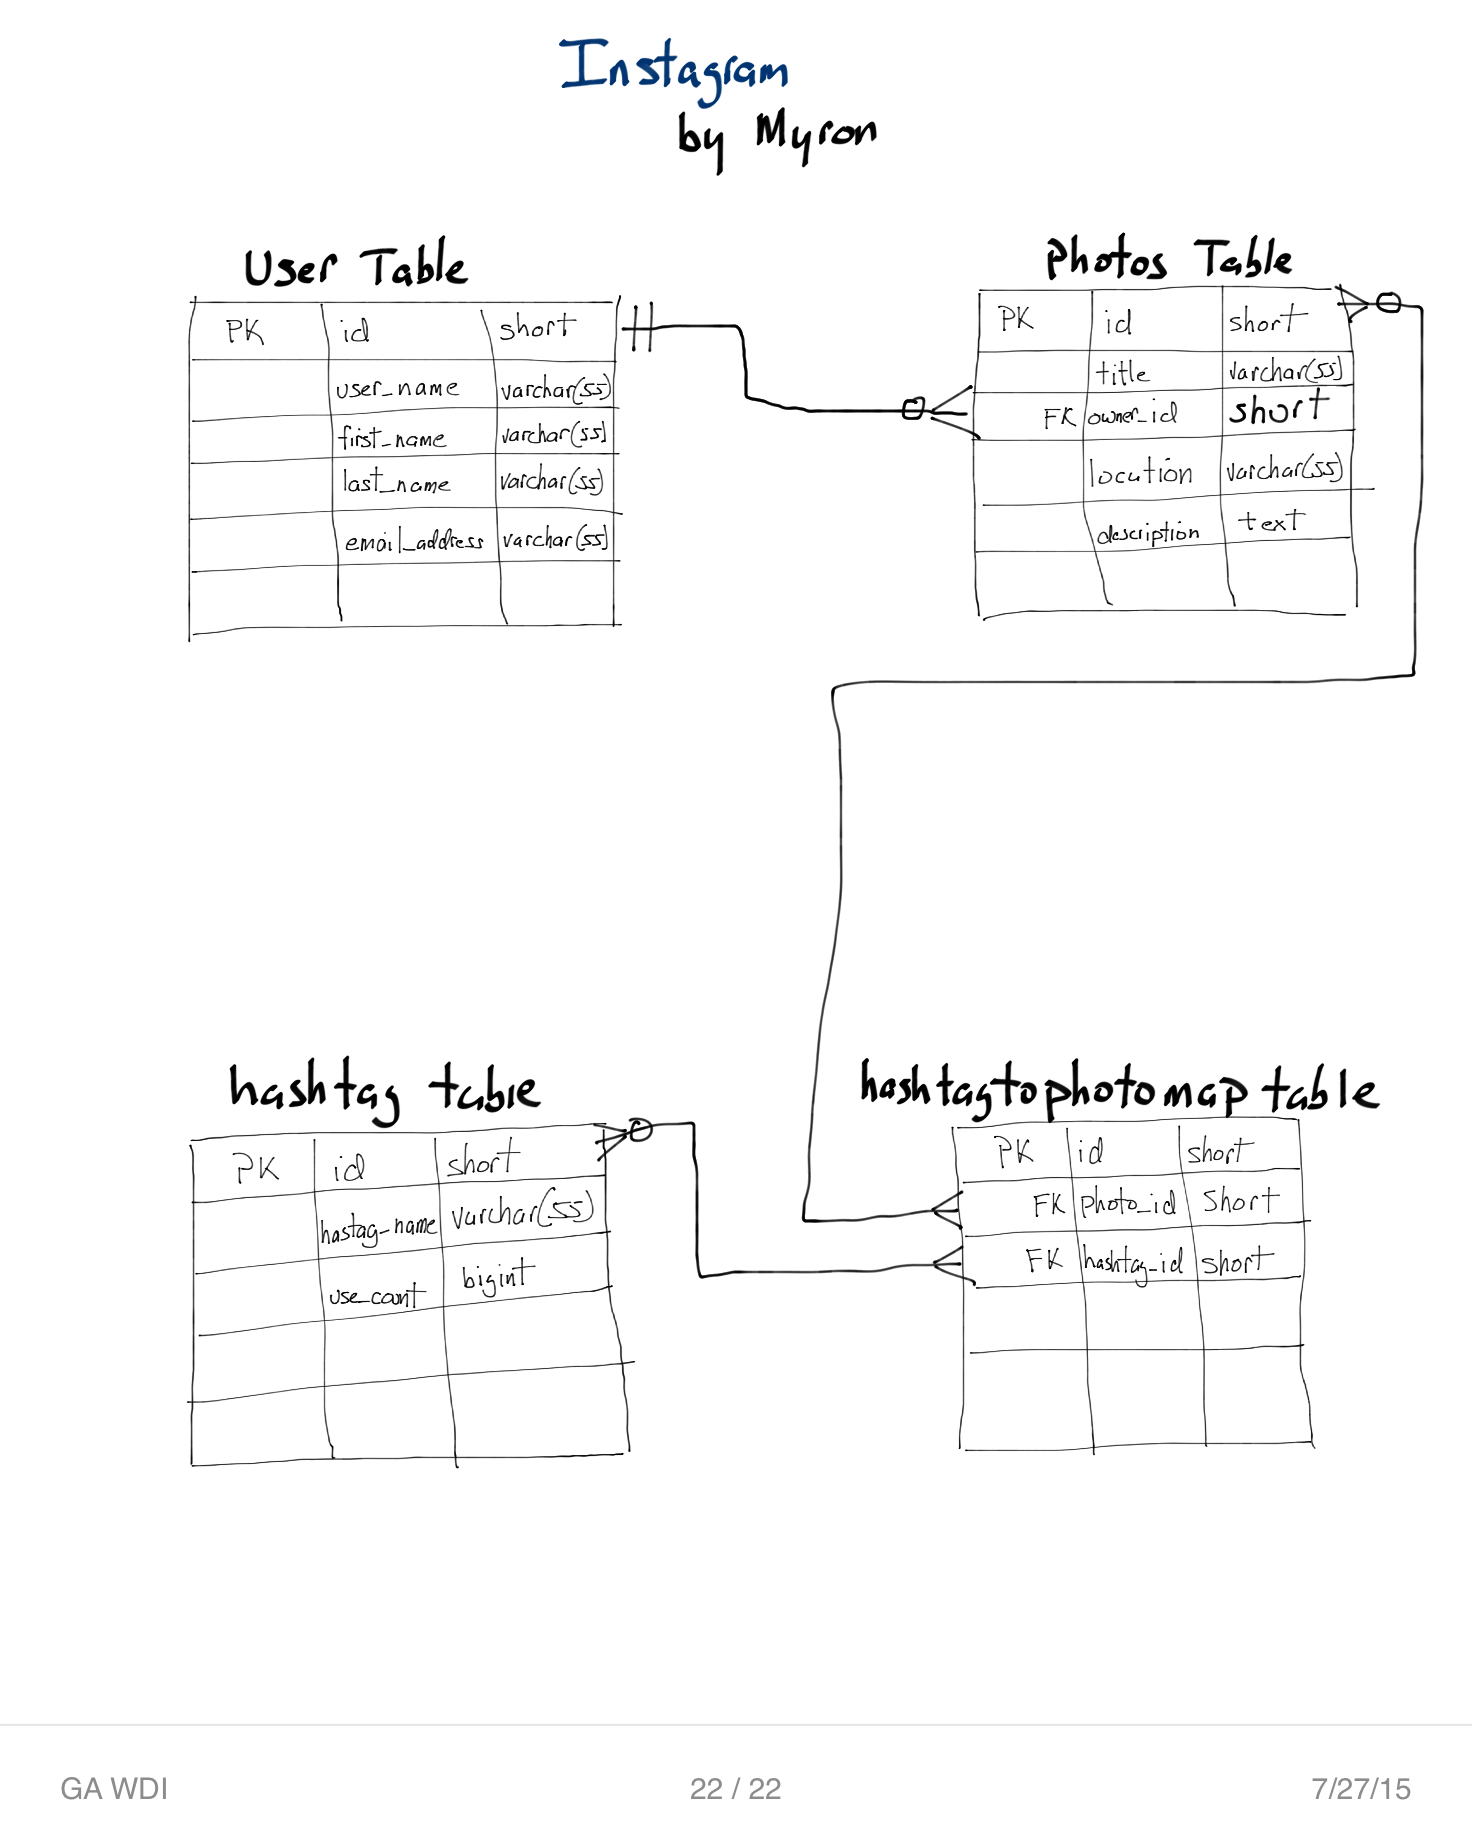 Instagram
by Myron
User Table
PK id short
user_name varchar(55)
first_name varchar(55)
last_name varchar(55)
email_address varchar(55)
Photos Table
PK id short
title varchar(55)
FK owner_id short
location varchar(55)
description text
hashtag table
PK id short
hastag_name varchar(55)
use_count bigint
hashtagtophotomap table
PK id short
FK photo_id short
FK hashtag_id short
GA WDI 22 / 22 7/27/15